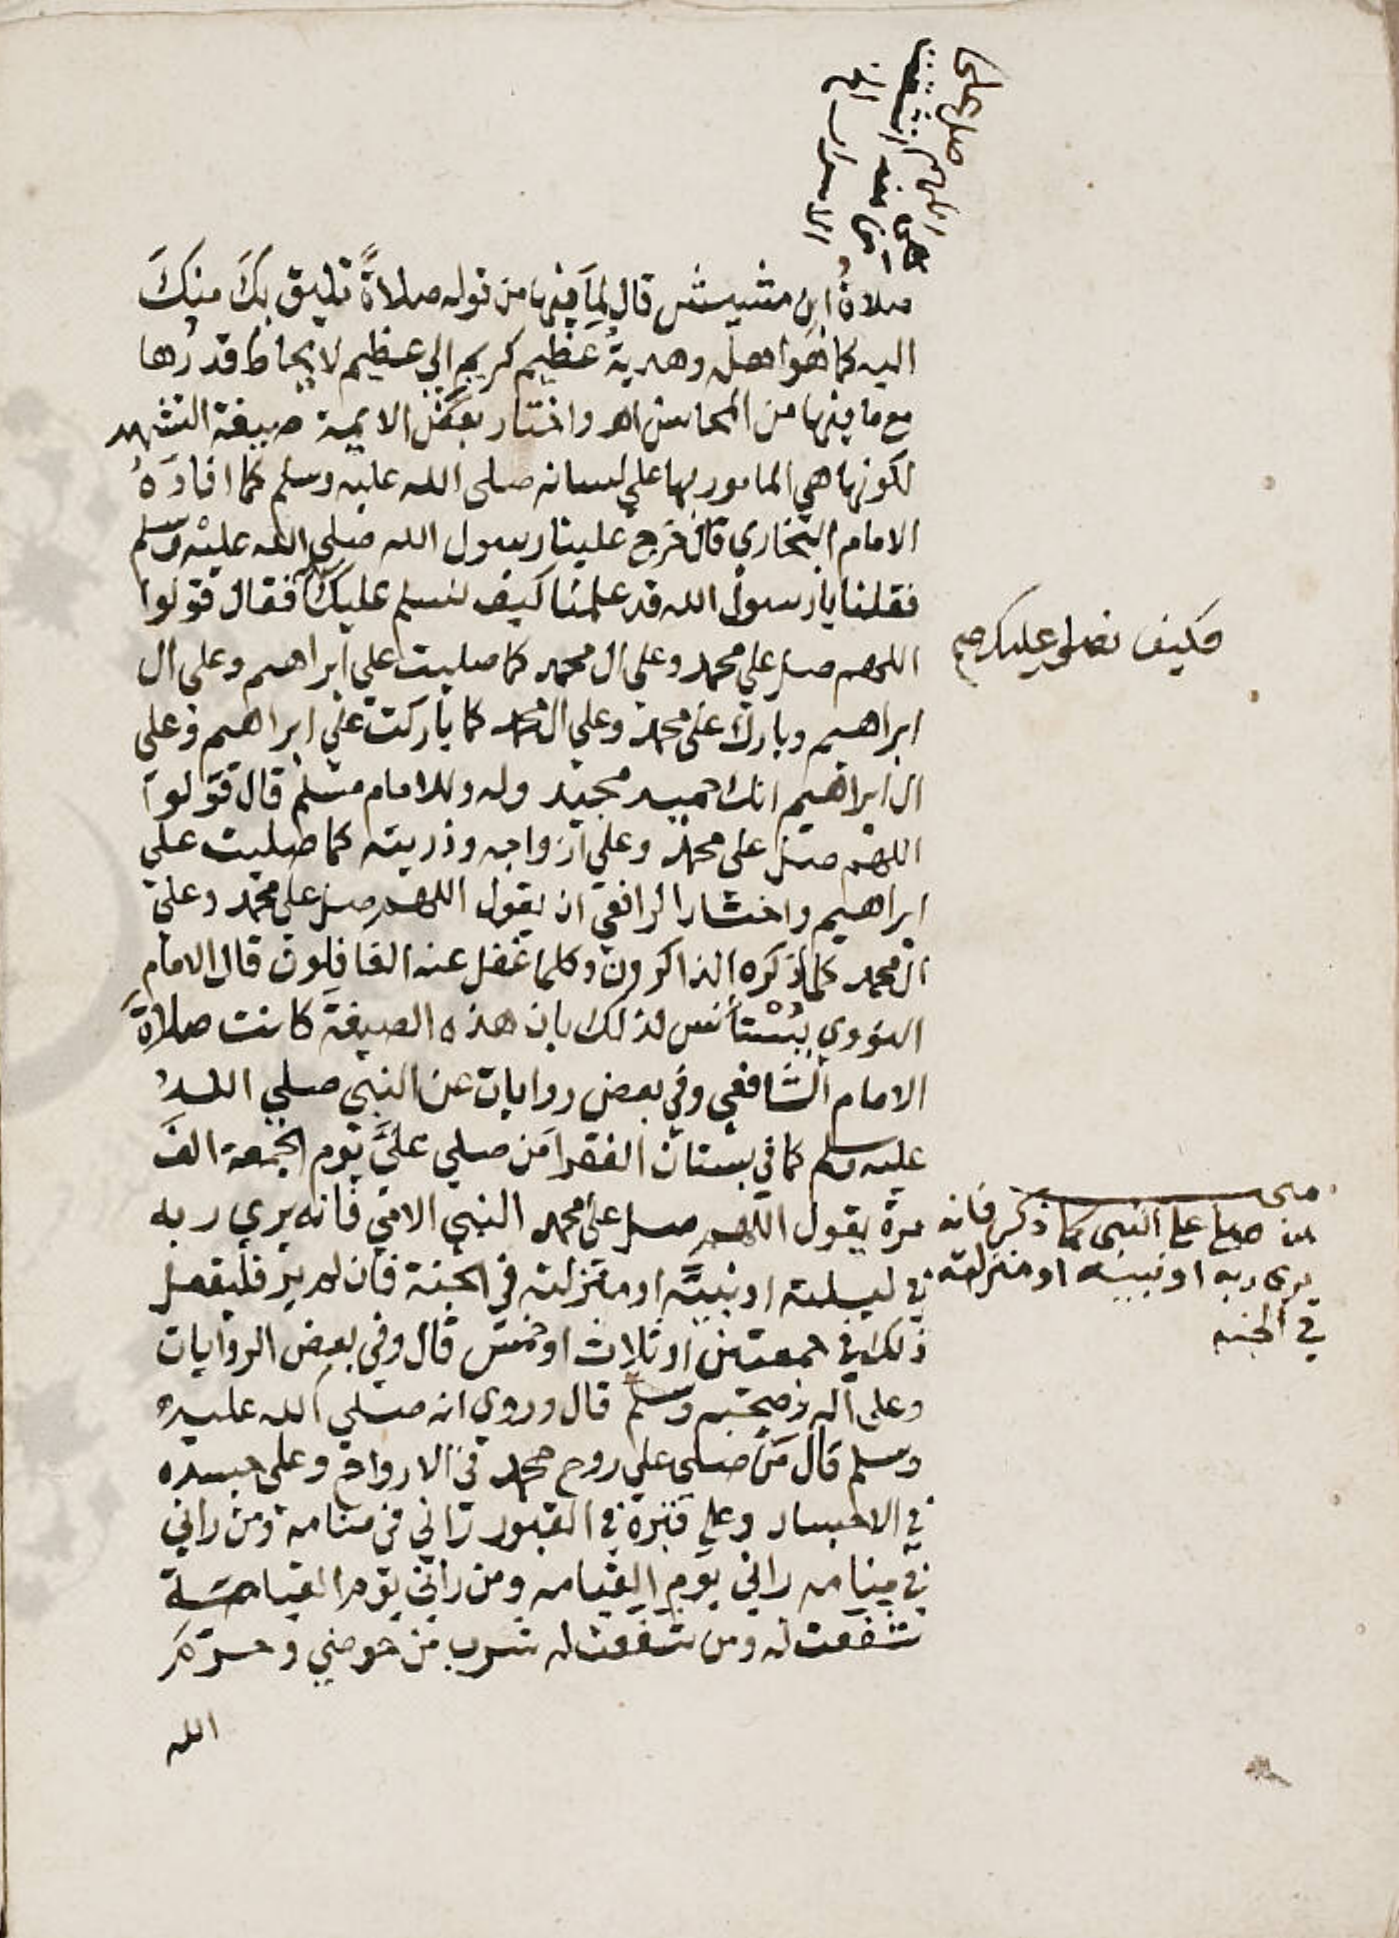 اللهم صل على
من منه انشقت
الاسرار الخ
صلاةُ ابن مشيش قال لِمَا فيها من قوله صلاةً تليق بكَ منكَ
اليه كما هو اهله وهدية عظيم كريم الي عظيم لا يحاط قدرُها
مع ما فيها من المحاسن اهـ واختار بعض الايمة صيغة التشهد
لكونها هي المامور بها علي لسانه صلي الله عليه وسلم كما افادَهُ
الامام البخاري قال خرج علينا رسول الله صلي الله عليه وسلم
فقلنا يا رسول الله قد علمنا كيف نسلم عليك فقال قولوا
فكيف نصلي عليك صح
اللهم صل علي محمد وعلي ال محمد كما صليت علي ابراهيم وعلي ال
ابراهيم وبارك علي محمد وعلي ال محمد كما باركت علي ابراهيم وعلي
ال ابراهيم انك حميد مجيد وله وللامام مسلم قال قولوا
اللهم صل علي محمد وعلي ازواجه وذريته كما صليت علي
ابراهيم واختار الرافعي ان يقول اللهم صل علي محمد وعلي
ال محمد كلما ذكره الذاكرون وكلما غفل عنه الغافِلون قال الامام
النووي يُسْتأنس لذلك بان هذه الصيغة كانت صلاة
الامام الشافعي وفي بعض روايات عن النبي صلي اللهُ
عليه وسلم كما في بستان الفقرا مَن صلي عليَّ يوم الجمعة الفَ
مرة يقول اللهم صل علي محمد النبي الامي فانه يري ربه
من صلي علي النبي كما ذكر فانه
يرى ربه او نبيه او منزلته
في الجنه
في ليلته او نبيَّه او منزلته في الجنة فان لم ير فليفعل
ذلك في جمعتين او ثلاث او خمس قال وفي بعض الروايات
وعلى اله وصحبه وسلم قال وروي انه صلي الله عليه
وسلم قال مَن صلي علي روح محمد في الارواح وعلي جسده
في الاجساد وعلي قبره في القبور راني في منامه ومن راني
في منامه راني يوم القيامه ومن راني يوم القيامة
شفعت له ومن شفعت له شرب من حوضي وحرم
الله